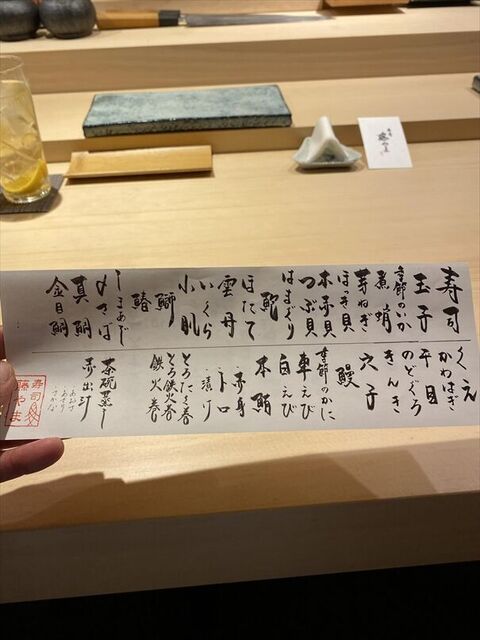 寿司
玉子
季節のいか
煮蛸
芽ねぎ
ほっき貝
本赤貝
つぶ貝
はまぐり
鮑
ほたて
雲丹
いくら
小肌
鰤
鰆
しまあじ
〆さば
真鯛
金目鯛
くえ
かわはぎ
平目
のどぐろ
きんき
穴子
鰻
季節のかに
車えび
白えび
本鮪
赤身
トロ
漬け
とろたく巻
とろ鉄火巻
鉄火巻
茶碗蒸し
赤出汁
あおさ
あさり
さかな
寿司
藤やま